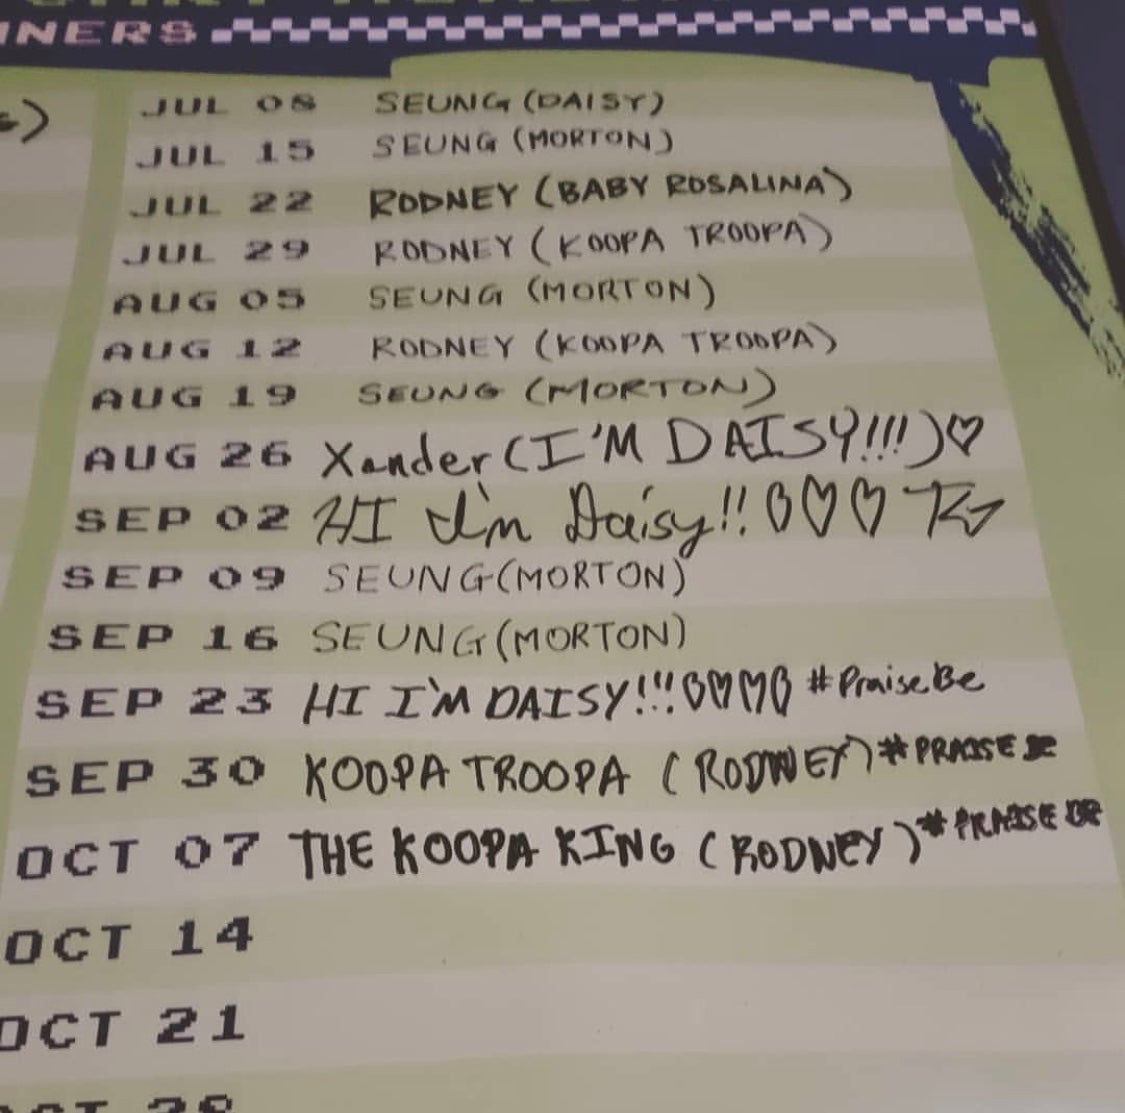 INERS
JUL 08 SEUNG (DAISY)
JUL 15 SEUNG (MORTON)
JUL 22 RODNEY (BABY ROSALINA)
JUL 29 RODNEY (KOOPA TROOPA)
AUG 05 SEUNG (MORTON)
AUG 12 RODNEY (KOOPA TROOPA)
AUG 19 SEUNG (MORTON)
AUG 26 Xander (I'M DAISY!!!)♡
SEP 02 HI I'm Daisy!!♡♡♡
SEP 09 SEUNG (MORTON)
SEP 16 SEUNG (MORTON)
SEP 23 HI I'M DAISY!!!♡♡♡♡ #PraiseBe
SEP 30 KOOPA TROOPA (RODNEY) #PRAISE BE
OCT 07 THE KOOPA KING (RODNEY) #PRAISE BE
OCT 14
OCT 21